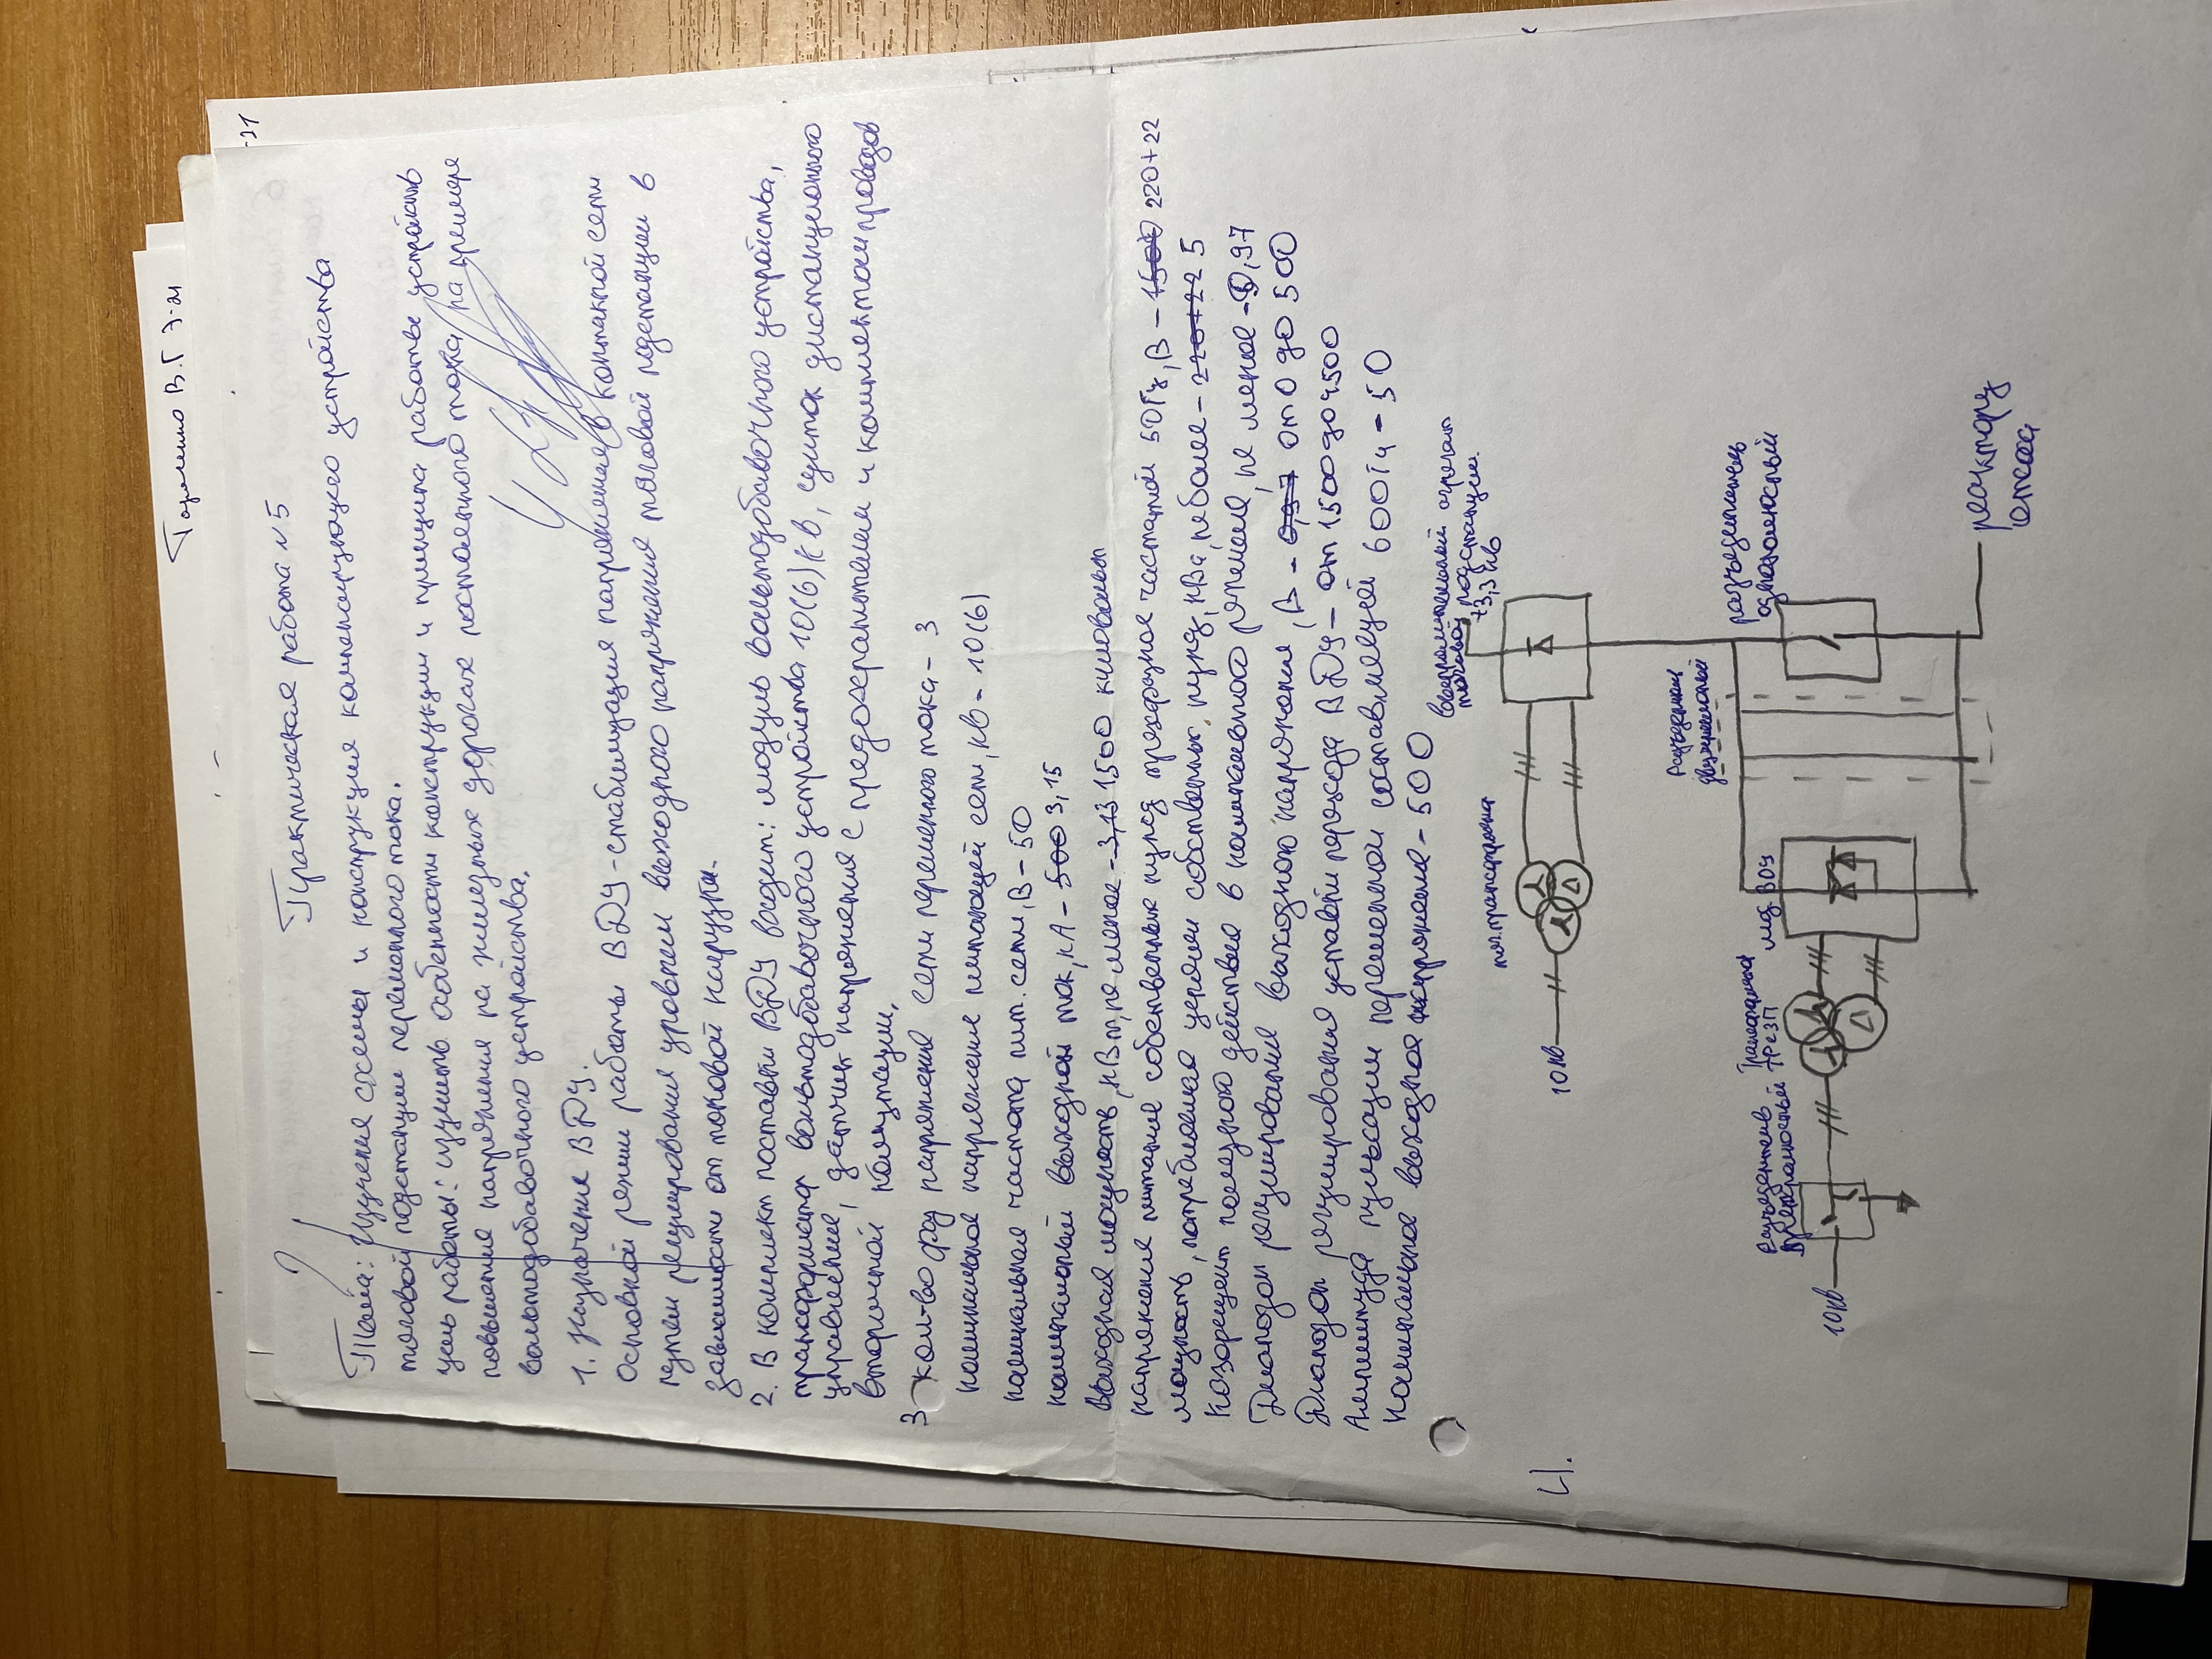 -21
Э-21
Практическая работа №5
Тема: Изучения схемы и конструкция компенсирующего устройства
тяговой подстанции переменного тока.
цель работы: изучить особенности конструкции и принципа работы устройств
повышение напряжения на железных дорогах постоянного тока на примере
вольтодобавочного устройства.
1. Назначение ВДУ.
Основной режим работы ВДУ-стабилизация напряжения в контактной сети
путем регулирования уровнем выходного напряжения тяговой подстанции в
зависимости от токовой нагрузки.
2. В комплект поставки ВДУ входит: модуль вольтодобавочного устройства,
трансформатор вольтодобавочного устройства 10(6)кв, щиток дистанционного
управление, датчик напряжения с предохранителем и комплектом проводов
вторичной коммутации.
3 кол-во фаз напряжение сети переменного тока-3
номинальное напряжение питающей сети, кВ-10(6)
номинальная частота пит. сети, В-50
номинальный выходной ток, кА-500 3,15
выходная мощность, кВт, не менее-3,13 1500 киловатт
напряжение питание собственных нужд трехфазное частотой 50Гц, В-1500 220+22
мощность, потребляемая цепями собственных нужд, кВа, не более-220+22 5
Коэффициент полезного действие в номинального режиме, не менее-0,97
Диапазон регулирования выходного напряжения, В-0,97 от 0 до 500
Диапазон регулирования уставки перехода ВДУ-от 1500 до 4500
Амплитуда пульсации переменной составляющей 600Гц-50
Номинальное выходная напряжение-500
4.
10кв
тяг.трансформатор
выпрямительный агрегат
тяговой подстанции
+3,3 кв
Разъединитель
двухполюсный
разъединитель
однополюсный
10кв
Разъединитель
трехполюсный
Трансформатор
ТРСЗП
мод. ВДУ
реактору
отсоса